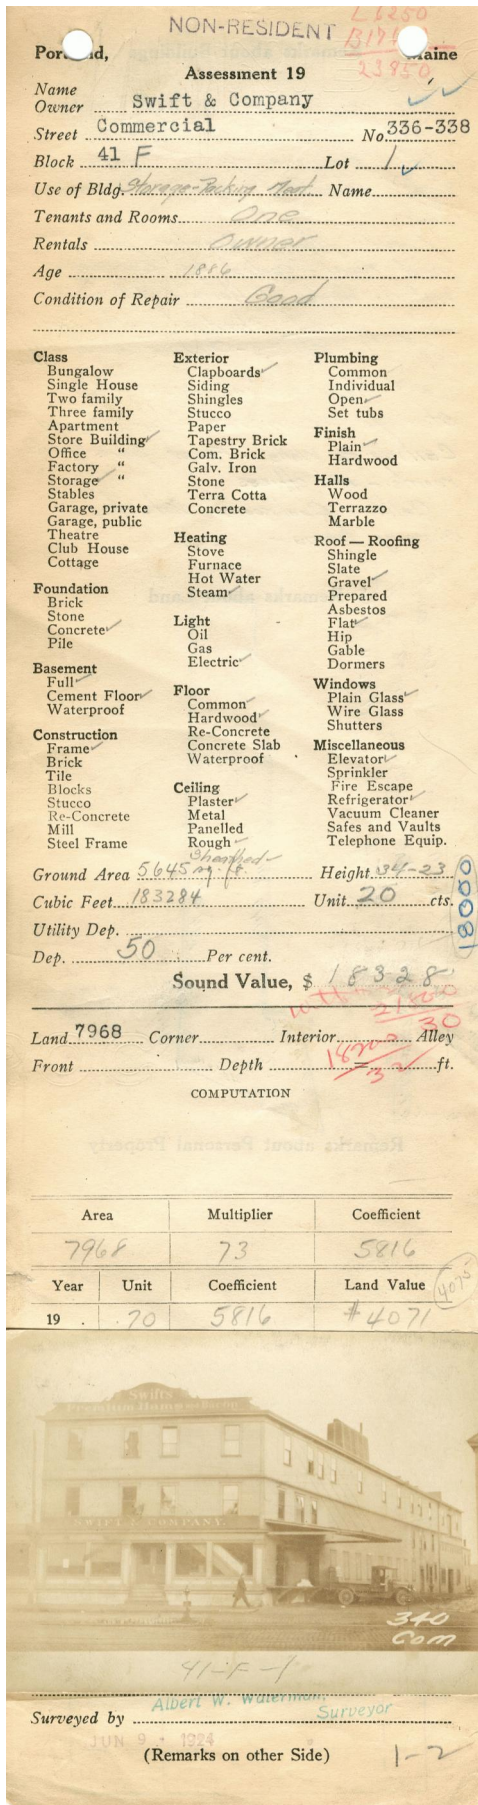 NON-RESIDENT
L 6250
23950
Maine
Assessment 19
Name
Owner Swift & Company
Street Commercial No. 336-338
Block 41 F Lot 1
Use of Bldg. Storage-Packing Meat Name
Tenants and Rooms One
Rentals Owner
Age 1886
Condition of Repair Good
Class
Bungalow
Single House
Two family
Three family
Apartment
Store Building
Office "
Factory "
Storage "
Stables
Garage, private
Garage, public
Theatre
Club House
Cottage
Foundation
Brick
Stone
Concrete
Pile
Basement
Full
Cement Floor
Waterproof
Construction
Frame
Brick
Tile
Blocks
Stucco
Re-Concrete
Mill
Steel Frame
Exterior
Clapboards
Siding
Shingles
Stucco
Paper
Tapestry Brick
Com. Brick
Galv. Iron
Stone
Terra Cotta
Concrete
Heating
Stove
Furnace
Hot Water
Steam
Light
Oil
Gas
Electric
Floor
Common
Hardwood
Re-Concrete
Concrete Slab
Waterproof
Ceiling
Plaster
Metal
Panelled
Rough
Plumbing
Common
Individual
Open
Set tubs
Finish
Plain
Hardwood
Halls
Wood
Terrazzo
Marble
Roof — Roofing
Shingle
Slate
Gravel
Prepared
Asbestos
Flat
Hip
Gable
Dormers
Windows
Plain Glass
Wire Glass
Shutters
Miscellaneous
Elevator
Sprinkler
Fire Escape
Refrigerator
Vacuum Cleaner
Safes and Vaults
Telephone Equip.
Sheathed
Ground Area 5645 sq. ft. Height 34-23
Cubic Feet 183284 Unit 20 cts.
18000
Utility Dep.
Dep. 50 Per cent.
Sound Value, $ 18328
30
Land 7968 Corner Interior Alley
Front Depth = ft.
COMPUTATION
Area Multiplier Coefficient
7968 73 5816
Year Unit Coefficient Land Value
4075
19 . .70 5816 #4071
Swift's
Premium Hams and Bacon
SWIFT & COMPANY
340
Com
41-F-1
Albert W. Waterman,
Surveyor
Surveyed by
JUN 9 - 1924
(Remarks on other Side)
1-2